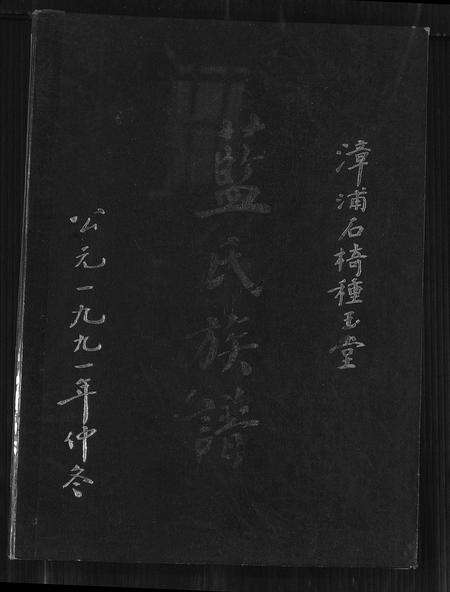 漳浦石椅種玉堂
藍氏族譜
公元一九九一年仲冬